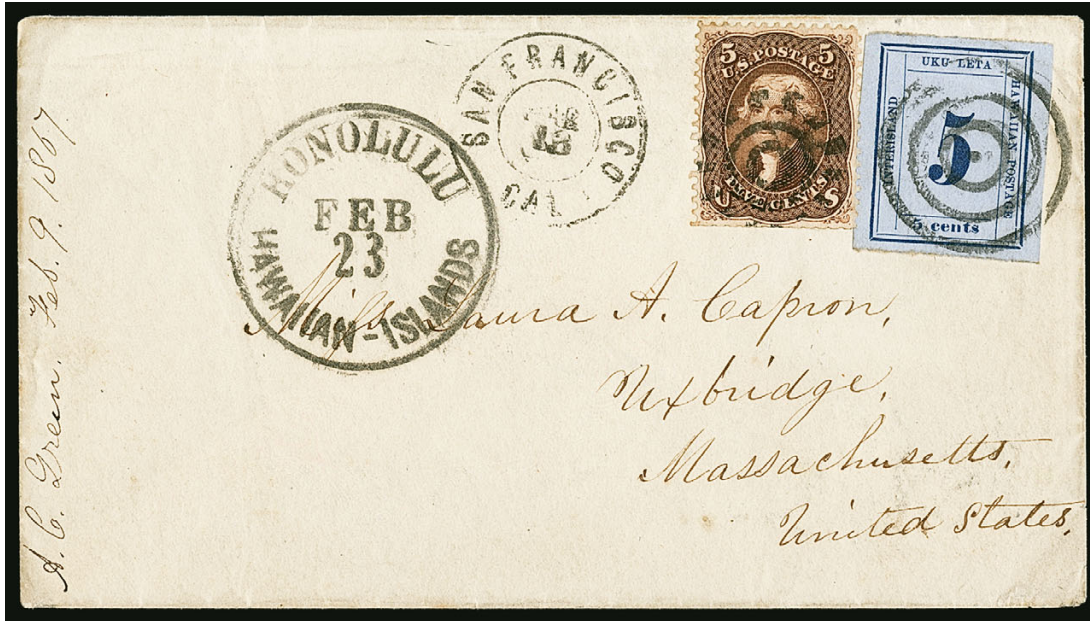 A. C. Green. Feb. 9. 1867
HONOLULU
FEB
23
HAWAIIAN-ISLANDS
SAN FRANCISCO
CAL
5 5
U.S. POSTAGE
FIVE CENTS
U S
UKU LETA
HAWAIIAN POSTAGE
INTERISLAND
5
5 cents
Miss Laura A. Capron,
Uxbridge,
Massachusetts,
United States,